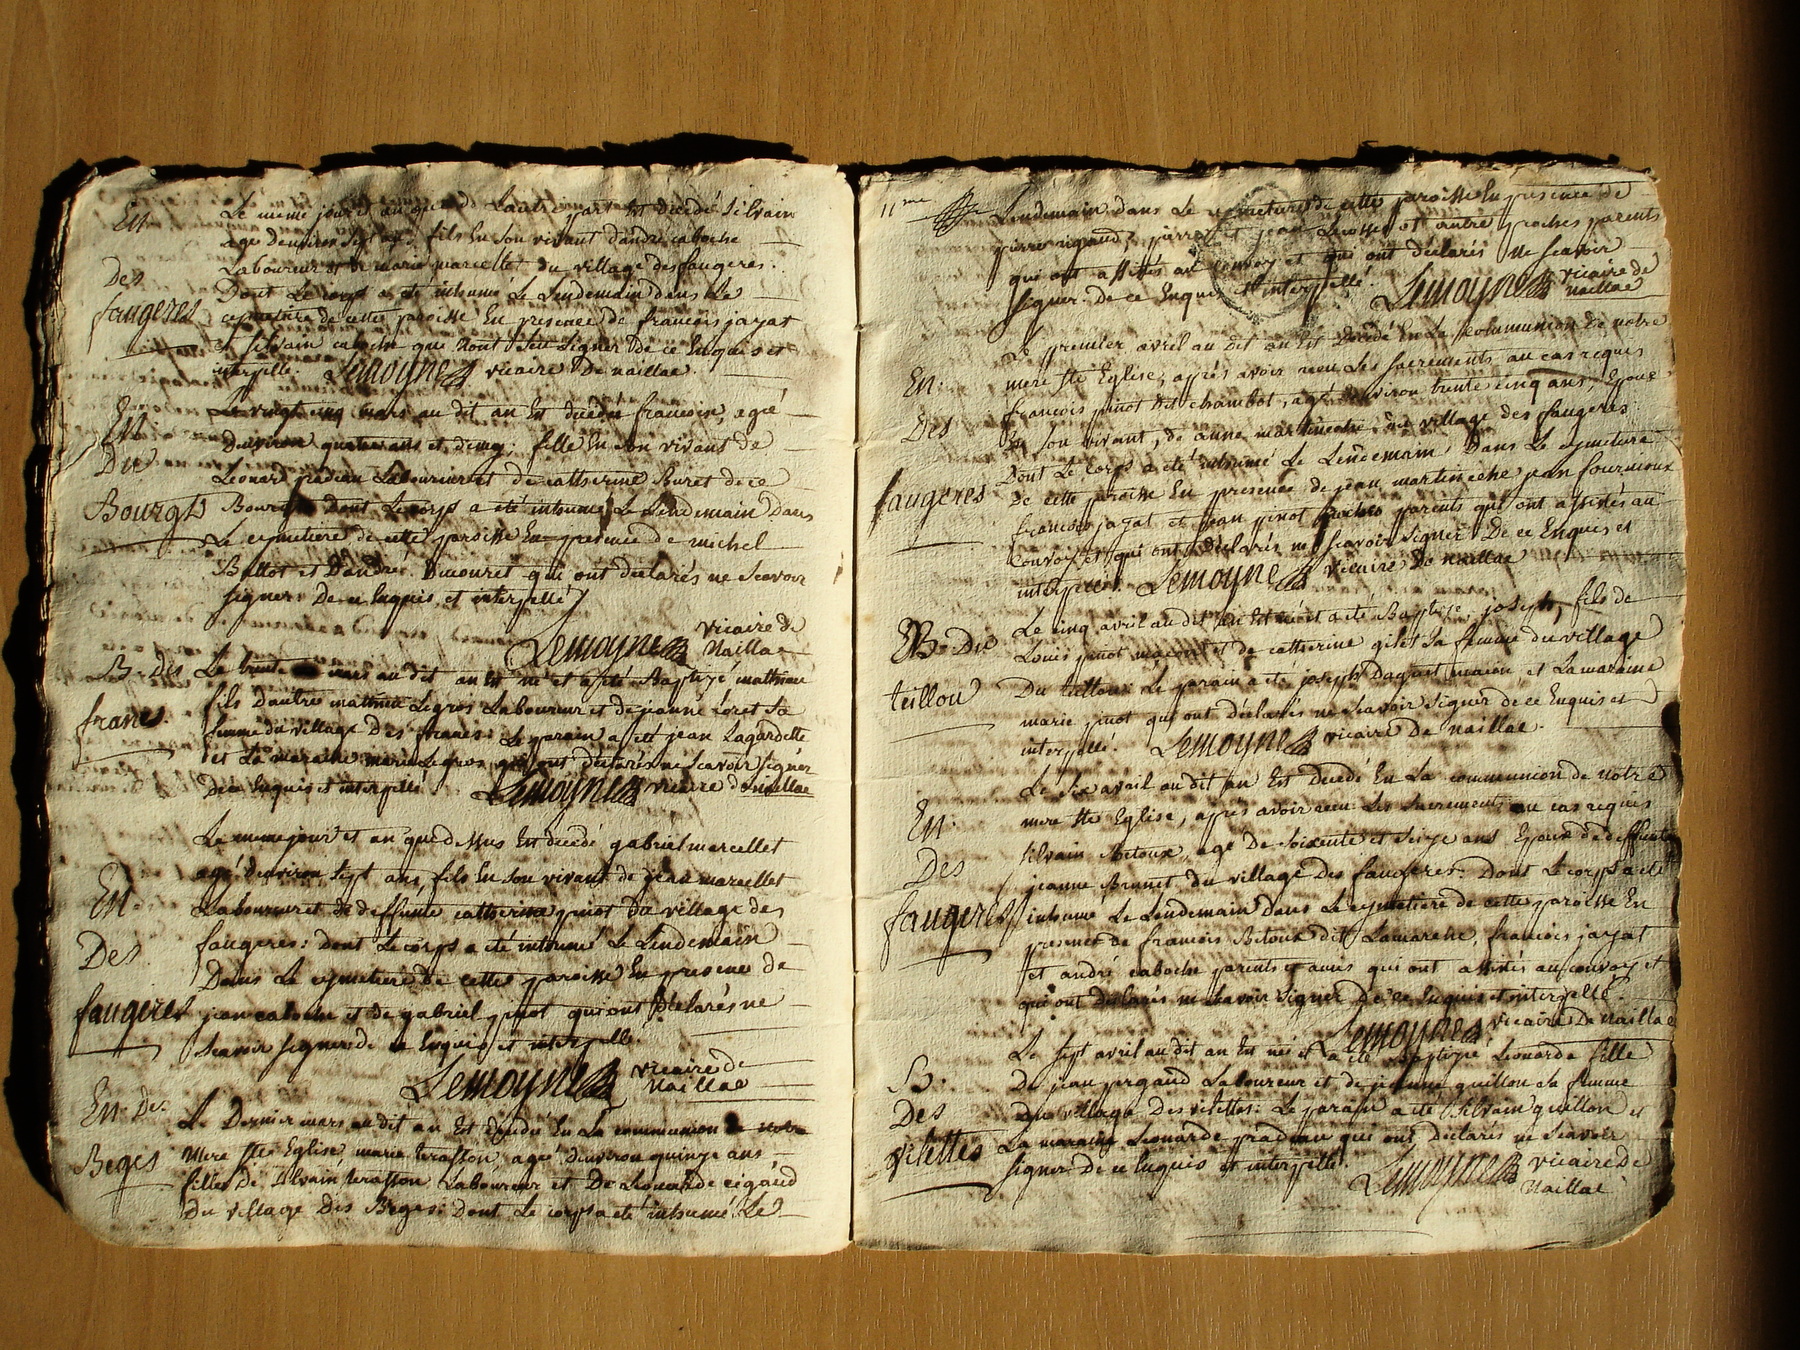 En
Le meme jour et an que de Lautre part Est decedé Silvain
age denviron Sept ans, fils En Son vivant dandré caboche
Laboureur et de marie marcellet du village des faugeres.
Des
faugeres
Dont Le corps a eté inhumé Le Lendemain dans Le
cymetiere de cette paroisse En presence de francois jayat
et Silvain caboche que nont Seu Signer de ce Enquis et
interpellé. Lemoyne vicaire De naillac.
En
Du
Bourg
Le vingt cinq mars au dit an Est decedée francoise, agée
Denviron quatre ans et demy; fille En Son vivant de
Leonard pradeau Laboureur et de catherine Buret de ce
Bourg Dont Le corps a eté inhumé Le Lendemain Dans
Le cymetiere de cette paroisse En presence de michel
Ballot et Dandré Ducouret qui ont declarés ne Scavoir
Signer De ce Enquis et interpellé
Lemoyne vicaire de
Naillac
B. Des
francs
Le trente mars au dit an Est né et a eté Baptizé mathieu
fils Dautre mathieu Legros Laboureur et de jeanne Loret Sa
femme du village Des francs. Le parain a eté jean Lagardette
et La maraine marie Legros qui ont declarés ne Scavoir Signer
De ce Enquis et interpellé Lemoyne vicaire de naillac
En
Des
faugeres
Le meme jour et an que dessus Est decedé gabriel marcellet
agé denviron Sept ans, fils En Son vivant de jean marcellet
Laboureur et de deffunte catherine pinot du village des
faugeres: dont Le corps a eté inhumé Le Lendemain
Dans Le cymetiere de cette paroisse En presence de
jean caboche et de gabriel pinot qui ont Declarés ne
Scavoir Signer de ce Enquis et interpellé.
Lemoyne vicaire de
Naillac
En Des
Beges
Le Dernier mars au dit an Est decedée En La communion de notre
Mere Ste Eglise marie terasson, agée denviron quinze ans
fille De Silvain terasson Laboureur et De Leonarde rigaud
Du village Des Beges: Dont Le corps a eté inhumé Le
11me
Lendemain Dans Le cymetiere de cette paroisse En presence de
pierre rigaud, pierre et jean et autre proches parents
qui ont assistés au convoy et qui ont declarés ne Scavoir
Signer de ce Enquis et interpellé. Lemoyne vicaire de
naillac
En.
Des
faugeres
Le premier avril au dit an Est Decedé En La communion de notre
mere Ste Eglise, aprés avoir recu Les Sacrements au cas requis
francois pinot dit chambot, agé denviron trente cinq ans, Epoux
En Son vivant, de anne martineche du village des faugeres:
Dont Le corps a eté inhumé Le Lendemain Dans Le cymetiere
De cette paroisse En presence de jean martineche jean fournioux
francois jayat et jean pinot proches parents qui ont assistés au
Convoy et qui ont Declarés ne Scavoir Signer De ce Enquis et
interpellé. Lemoyne vicaire De naillac
B. Du
teillou
Le cinq avril au dit an Est né et a eté Baptizé joseph, fils de
Louis pinot macon et de catherine gilet Sa femme du village
Du teilloux. Le parain a eté joseph Daguet macon, et La maraine
marie pinot qui ont Declarés ne Scavoir Signer de ce Enquis et
interpellé. Lemoyne vicaire De naillac.
En.
Des
faugeres
Le Six avril au dit an Est decedé En La communion de notre
mere Ste Eglise, aprés avoir recu Les Sacrements au cas requis
Silvain Betoux, agé De Soixente et Seize ans Epoux de deffunte
jeanne Brunet du village Des faugeres. Dont Le corps a eté
inhumé Le Lendemain Dans Le cymetiere de cette paroisse En
presence de francois Betoux dit Lamarche, francois jayat
et andré caboche parents et amis qui ont assistés au convoy et
qui ont Declarés ne Scavoir Signer De ce Enquis et interpellé.
Lemoyne vicaire De Naillac
B.
Des
vilettes
Le Sept avril au dit an Est née et a eté Baptizée Leonarde fille
De jean pergaud Laboureur et de jeanne guillon Sa femme
Du village Des vilettes: Le parain a eté Silvain guillon et
La maraine Leonarde pradeau qui ont Declarés ne Scavoir
Signer De ce Enquis et interpellé. Lemoyne vicaire de
Naillac